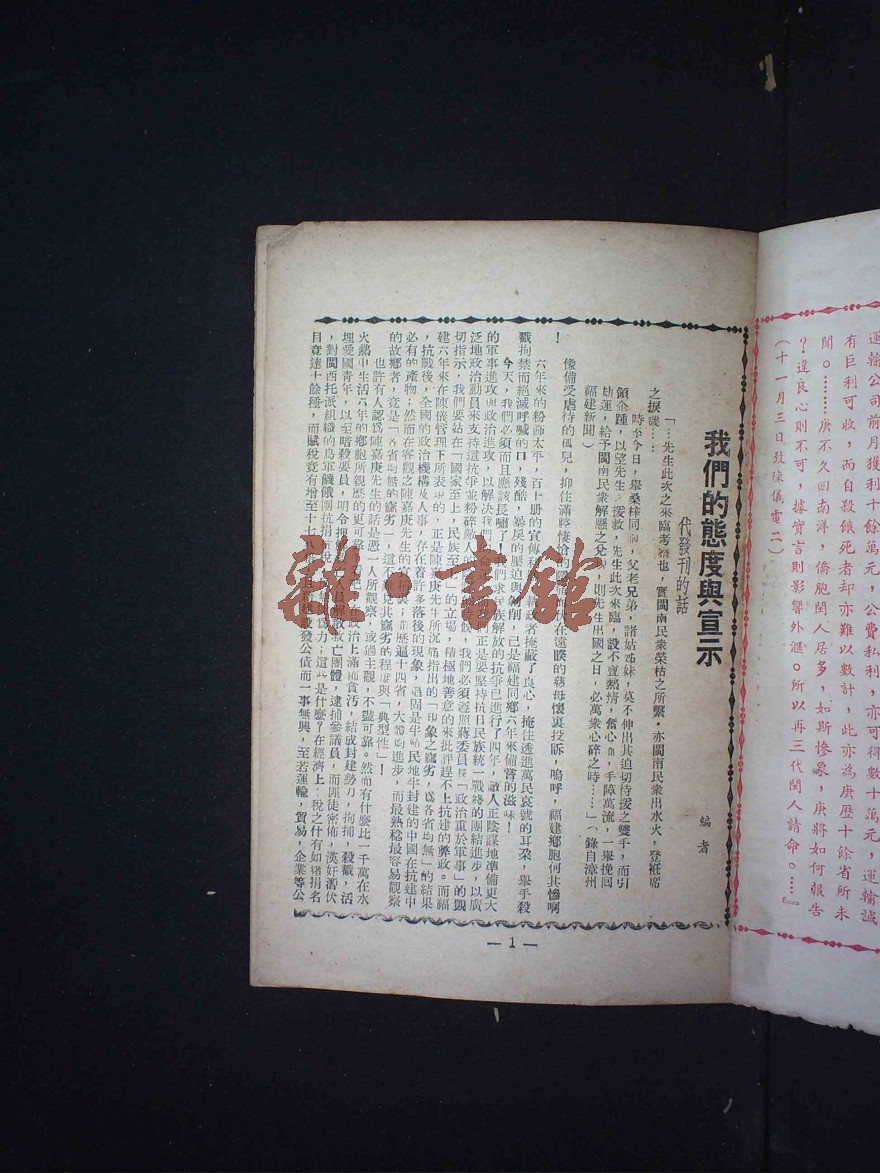 運輸公司前月獲利十餘萬元，公費私利，亦可得數十萬元，運輸誠
有巨利可收，而自殺餓死者却亦難以數計，此亦為庚歷十餘省所未
聞。……庚不久回南洋，僑胞閩人居多，如斯慘象，庚將如何報告
？違良心則不可，據實言則影響外滙。所以再三代閩人請命。……』
（十一月三日致陳儀電二）
我們的態度與宣示
代發刊的話
編者
「…先生此次之來臨考察也，實閩南民衆榮枯之所繫，亦閩南民衆出水火，登袵席
之捩機……
時至今日，舉桑梓同胞，父老兄弟，諸姑姊妹，莫不伸出其迫切待援之雙手，而引
領企踵，以望先生之援救，先生此次來臨，設不亶熱情，奮心血，手障萬流，一舉挽囘
劫運，給予閩南民衆解懸之兌現，則先生出國之日，必萬衆心碎之時……」（錄自漳州
福建新聞）
像備受虐待的孤兒，抑住滿腔悽愴的 在遠睽的慈母懷裏投訴，嗚呼，福建鄉胞何其慘啊
！
六年來的粉飾太平，百十册的宣傳 政者掩蔽了良心，掩住透進萬民哀號的耳朶，舉手殺
戮拘禁而絕滅呼喊的口，殘酷，暴戾的壓迫與剝削，已是福建同鄉六年來備嘗的滋味！
今天，我們必須而且應該長嘯了 們求民族解放的抗爭已進行了四年，敵人正陰謀地準備更大
的軍事進攻與政治進攻，以解決我們 正是要堅持抗日民族統一戰綫的團結進步，以廣
泛地政治動員來支持這抗爭並粉碎敵人的 我們必須遵照蔣委員長「政治重於軍事」的凱
切指示，我們要站在「國家至上，民族至上」的立場，積極地善意的來批評趕不上抗建的弊政。而福
建六年來在陳儀管理下所表現的，正是陳嘉庚先生所沉痛指出的「印象之窳劣，爲各省均無」的結果
，抗戰後，全國的政治機構及人事，存在着許多落後的現象，這固是半殖民地半封建的中國在抗建中
必有的產物，然而在客觀之陳嘉庚先生的 歷遍十四省，大都均進步，而最熟稔最容易觀察
的故鄉者，竟是「各省均無的窳劣」，這 見其窳劣的程度與「典型性」！
也許有人認爲陳嘉庚先生的話是憑一人所觀察，或過主觀，不盡可靠。然而有什麼比一千萬在水
火熱中生活六年的鄉胞所親歷的更可靠 在政治上滿 貪汚，結成封建勢力，拘捕，殺戮，活
埋愛國青年，以至暗殺要員，明令押 解散救亡團體，逮捕參議員，而匪徒密佈，漢奸潛伏
，對閩西托派組織的烏軍饑餓團抗捐 力；這些是什麼？在經濟上：稅之什有如雜捐名
目竟達十餘種，而賦稅竟有增至十七八 發公債而一事無興，至若運輸，貿易，企業等公
— 1 —
雜·書館